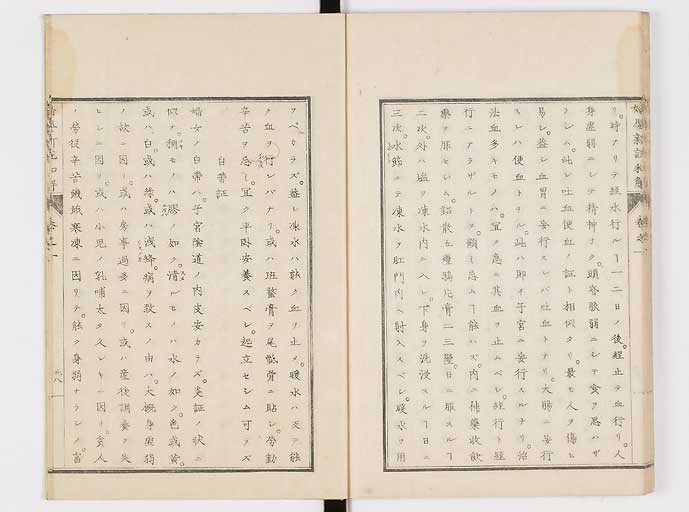 リ。時アリテ経水行ルヿ一二日ノ後。経止テ血行リ。人
身虚弱ニシテ精神ナク。頭昏眼弱ニシテ食ヲ思ハザ
ラシム。此レ吐血便血ノ証ト相似タリ。最モ人ヲ傷ヒ
易シ。蓋シ血胃ニ妄行スレバ吐血トナリ。大腸ニ妄行
スレハ便血トナル。此ハ即チ子宮ニ妄行スルナリ。治
法血多キモノハ。宜ク急ニ其血ヲ止ムベシ。経行ト経
行ニアラザルトヲ。顧ミ忌ムヿ能ハズ。内ニ補薬收斂
薬ヲ服セシム。鉛散五釐鴉片膏二三釐。日ニ服スルヿ
二次。外ハ塩ヲ凍水内ニ入レ。下身ヲ洗浸スルヿ日ニ
三次。水節ニテ凍水ヲ肛門内ヘ射入スベシ。暖水ヲ用
ヲベカラズ。蓋シ凍水ハ能ク血ヲ止メ。暖水ハ反テ能
ク血ヲ行レバナリ。或ハ班蝥膏ヲ尾骶骨ニ貼シ。労動
辛苦ヲ忌ミ。宜ク平臥安養スベシ。起立セシム可ラズ
白帯証
婦女ノ白帯ハ。子宮陰道ノ内皮安カラズ。炎証ノ状ニ
似タリ。稠モノハ膠ノ如ク。清ルモノハ水ノ如ク。色或黄。
或ハ白。或ハ赤。或ハ浅緑。病ヲ致スノ由ハ。大概身虚弱
ノ故ニ因リ。或ハ房事過多ニ因リ。或ハ産後調養ヲ失
ヒシニ因リ。或ハ小児ノ乳哺太タ久シキニ因リ。貧人
ハ労役辛苦饑餓寒凍ニ因リテ。能ク身弱ナラシメ。富